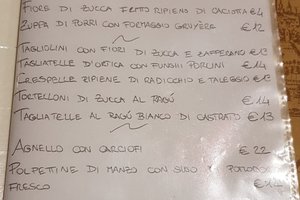 FIORE DI ZUCCA FRITTO RIPIENO DI CACIOTTA €4
ZUPPA DI PORRI CON FORMAGGIO GRUYÈRE €12
TAGLIOLINI CON FIORI DI ZUCCA E ZAFFERANO €13
TAGLIATELLE D'ORTICA CON FUNGHI PORCINI €14
CRESPELLE RIPIENE DI RADICCHIO E TALEGGIO €13
TORTELLONI DI ZUCCA AL RAGÙ €14
TAGLIATELLE AL RAGÙ BIANCO DI CASTRATO €13
AGNELLO CON CARCIOFI €22
POLPETTINE DI MANZO CON SUGO DI POMODORO
FRESCO €14